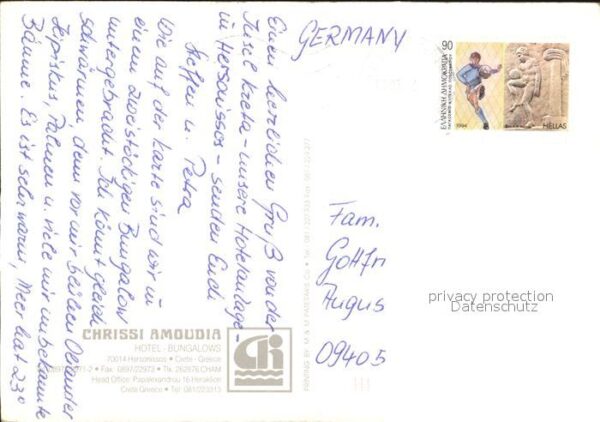 GERMANY
Einen herzlichen Gruß von der
Insel Kreta - unsere Hotelanlage -
in Hersonissos - senden Euch
Steffen u. Petra
Wie auf der Karte sind wir in
einem zweistöckigen Bungalow
untergebracht. Ich könnt gleich
schwärmen, denn vor mir blühen Oleander
Palmen u. viele mir unbekannte
Bäume. Es ist sehr warm, Meer hat 23°
90
ΕΛΛΗΝΙΚΗ ΔΗΜΟΚΡΑΤΙΑ
1994
HELLAS
Fam.
Augus
09405
privacy protection
Datenschutz
CHRISSI AMOUDIA
HOTEL - BUNGALOWS
70014 Hersonissos • Crete - Greece
• Fax: 0897/22973 • Tlx. 262876 CHAM
Head Office: Papalexandrou 16 Heraklion
Crete Greece • Tel: 081/223313